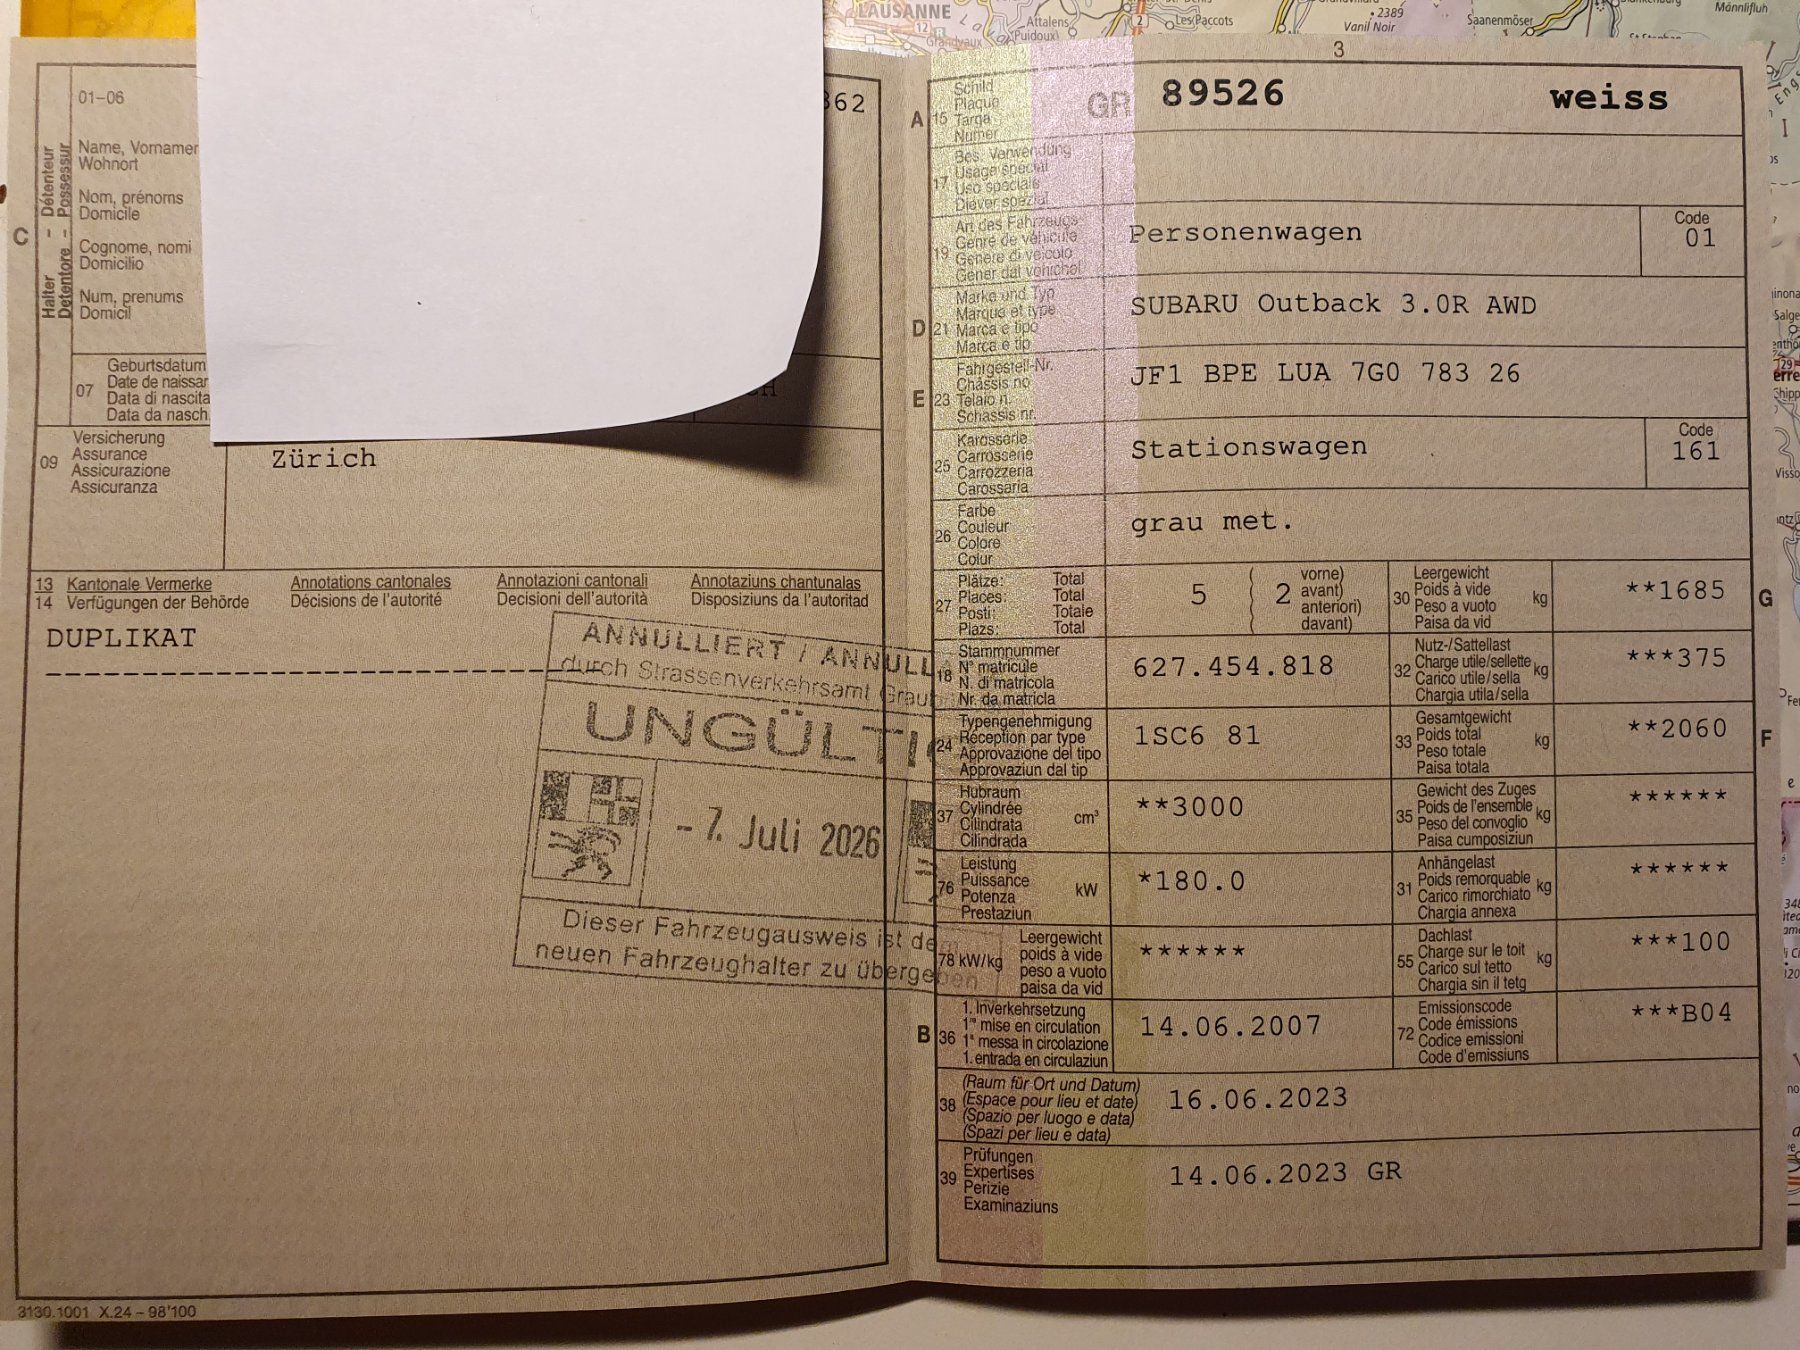 LAUSANNE
Attalens
Puidoux
Les Paccots
2389
Vanil Noir
Saanenmöser
Männlifluh
01-06
862
Halter - Détenteur
Detentore - Possessur
C
Name, Vornamen
Wohnort
Nom, prénoms
Domicile
Cognome, nomi
Domicilio
Num, prenums
Domicil
07
Geburtsdatum
Date de naissar
Data di nascita
Data da nasch.
09
Versicherung
Assurance
Assicurazione
Assicuranza
Zürich
13 Kantonale Vermerke
14 Verfügungen der Behörde
Annotations cantonales
Décisions de l'autorité
Annotazioni cantonali
Decisioni dell'autorità
Annotaziuns chantunalas
Disposiziuns da l'autoritad
DUPLIKAT
ANNULLIERT / ANNULL
durch Strassenverkehrsamt Graub
UNGÜLTIG
-7. Juli 2026
Dieser Fahrzeugausweis ist dem
neuen Fahrzeughalter zu übergeben
3130.1001 X.24 – 98'100
3
A 15
Schild
Plaque
Targa
Numer
GR 89526 weiss
17
Bes. Verwendung
Usage spécial
Uso speciale
Diever spezial
19
Art des Fahrzeugs
Genre de véhicule
Genere di veicolo
Gener dal vehichel
Personenwagen
Code
01
D 21
Marke und Typ
Marque et type
Marca e tipo
Marca e tip
SUBARU Outback 3.0R AWD
E 23
Fahrgestell-Nr.
Châssis no
Telaio n.
Schassis nr.
JF1 BPE LUA 7G0 783 26
25
Karosserie
Carrosserie
Carrozzeria
Carossaria
Stationswagen
Code
161
26
Farbe
Couleur
Colore
Colur
grau met.
27
Plätze: Total
Places: Total
Posti: Totale
Plazs: Total
5 ( 2 vorne)
avant)
anteriori)
davant)
30
Leergewicht
Poids à vide
Peso a vuoto
Paisa da vid
kg
**1685
G
18
Stammnummer
N° matricule
N. di matricola
Nr. da matricla
627.454.818
32
Nutz-/Sattellast
Charge utile/sellette
Carico utile/sella
Chargia utila/sella
kg
***375
24
Typengenehmigung
Réception par type
Approvazione del tipo
Approvaziun dal tip
1SC6 81
33
Gesamtgewicht
Poids total
Peso totale
Paisa totala
kg
**2060
F
37
Hubraum
Cylindrée
Cilindrata
Cilindrada
cm³
**3000
35
Gewicht des Zuges
Poids de l'ensemble
Peso del convoglio
Paisa cumposiziun
kg
******
76
Leistung
Puissance
Potenza
Prestaziun
kW
*180.0
31
Anhängelast
Poids remorquable
Carico rimorchiato
Chargia annexa
kg
******
78 kW/kg
Leergewicht
poids à vide
peso a vuoto
paisa da vid
******
55
Dachlast
Charge sur le toit
Carico sul tetto
Chargia sin il tetg
kg
***100
B 36
1. Inverkehrsetzung
1re mise en circulation
1a messa in circolazione
1. entrada en circulaziun
14.06.2007
72
Emissionscode
Code émissions
Codice emissioni
Code d'emissiuns
***B04
38
(Raum für Ort und Datum)
(Espace pour lieu et date)
(Spazio per luogo e data)
(Spazi per lieu e data)
16.06.2023
39
Prüfungen
Expertises
Perizie
Examinaziuns
14.06.2023 GR